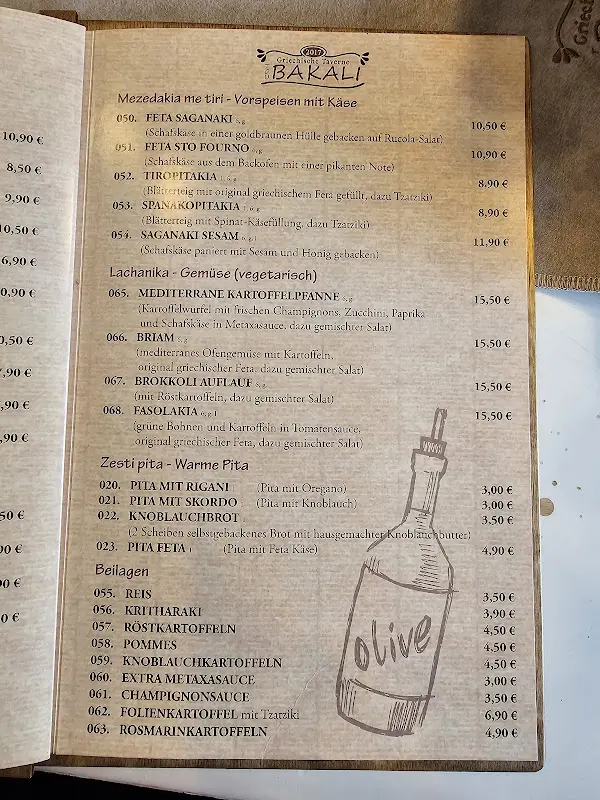 10,90 €
8,50 €
9,90 €
10,50 €
6,90 €
0,90 €
0,50 €
,90 €
,90 €
,90 €
50 €
00 €
00 €
0 €
2017
Griechische Taverne
BAKALI
Mezedakia me tiri - Vorspeisen mit Käse
050. FETA SAGANAKI 10,50 €
(Schafskäse in einer goldbraunen Hülle gebacken auf Rucola-Salat)
051. FETA STO FOURNO 10,90 €
(Schafskäse aus dem Backofen mit einer pikanten Note)
052. TIROPITAKIA 8,90 €
(Blätterteig mit original griechischem Feta gefüllt, dazu Tzatziki)
053. SPANAKOPITAKIA 8,90 €
(Blätterteig mit Spinat-Käsefüllung, dazu Tzatziki)
054. SAGANAKI SESAM 11,90 €
(Schafskäse paniert mit Sesam und Honig gebacken)
Lachanika - Gemüse (vegetarisch)
065. MEDITERRANE KARTOFFELPFANNE 15,50 €
(Kartoffelwürfel mit frischen Champignons, Zucchini, Paprika
und Schafskäse in Metaxasauce, dazu gemischter Salat)
066. BRIAM 15,50 €
(mediterranes Ofengemüse mit Kartoffeln,
original griechischer Feta, dazu gemischter Salat)
067. BROKKOLI AUFLAUF 15,50 €
(mit Röstkartoffeln, dazu gemischter Salat)
068. FASOLAKIA 15,50 €
(grüne Bohnen und Kartoffeln in Tomatensauce,
original griechischer Feta, dazu gemischter Salat)
Zesti pita - Warme Pita
020. PITA MIT RIGANI (Pita mit Oregano) 3,00 €
021. PITA MIT SKORDO (Pita mit Knoblauch) 3,00 €
022. KNOBLAUCHBROT 3,50 €
(2 Scheiben selbstgebackenes Brot mit hausgemachter Knoblauchbutter)
023. PITA FETA (Pita mit Feta Käse) 4,90 €
Beilagen
055. REIS 3,50 €
056. KRITHARAKI 3,90 €
057. RÖSTKARTOFFELN 4,50 €
058. POMMES 4,50 €
059. KNOBLAUCHKARTOFFELN 4,50 €
060. EXTRA METAXASAUCE 3,00 €
061. CHAMPIGNONSAUCE 3,50 €
062. FOLIENKARTOFFEL mit Tzatziki 6,90 €
063. ROSMARINKARTOFFELN 4,90 €
olive